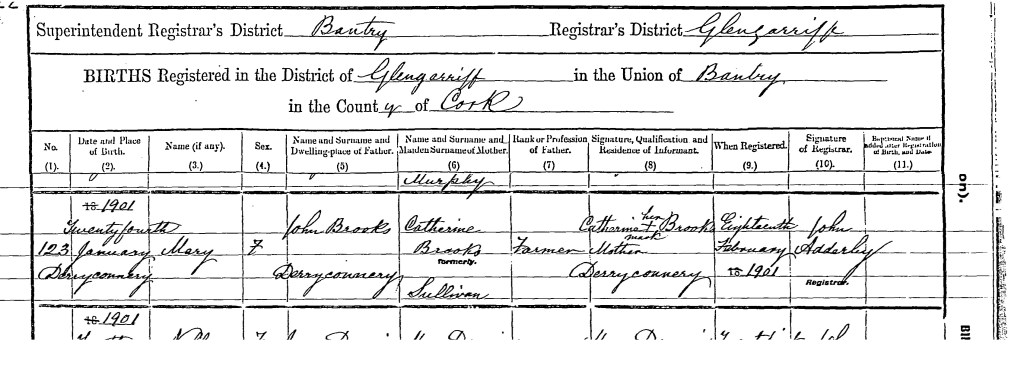 Superintendent Registrar's District Bantry Registrar's District Glengarriff
BIRTHS Registered in the District of Glengarriff in the Union of Bantry
in the County of Cork
No. (1). Date and Place of Birth. (2). Name (if any). (3.) Sex. (4.) Name and Surname and Dwelling-place of Father. (5) Name and Surname and Maiden Surname of Mother. (6) Rank or Profession of Father. (7) Signature, Qualification and Residence of Informant. (8) When Registered. (9.) Signature of Registrar. (10). Baptismal Name if added after Registration of Birth, and Date. (11.)
Murphy
18 1901
Twenty fourth John Brooks Catherine Catherine her + mark Brooks Eighteenth John
123 January Mary F Brooks Farmer Mother February Adderley
formerly.
Derryconnery Derryconnery Derryconnery 18 1901
Registrar.
Sullivan
18 1901